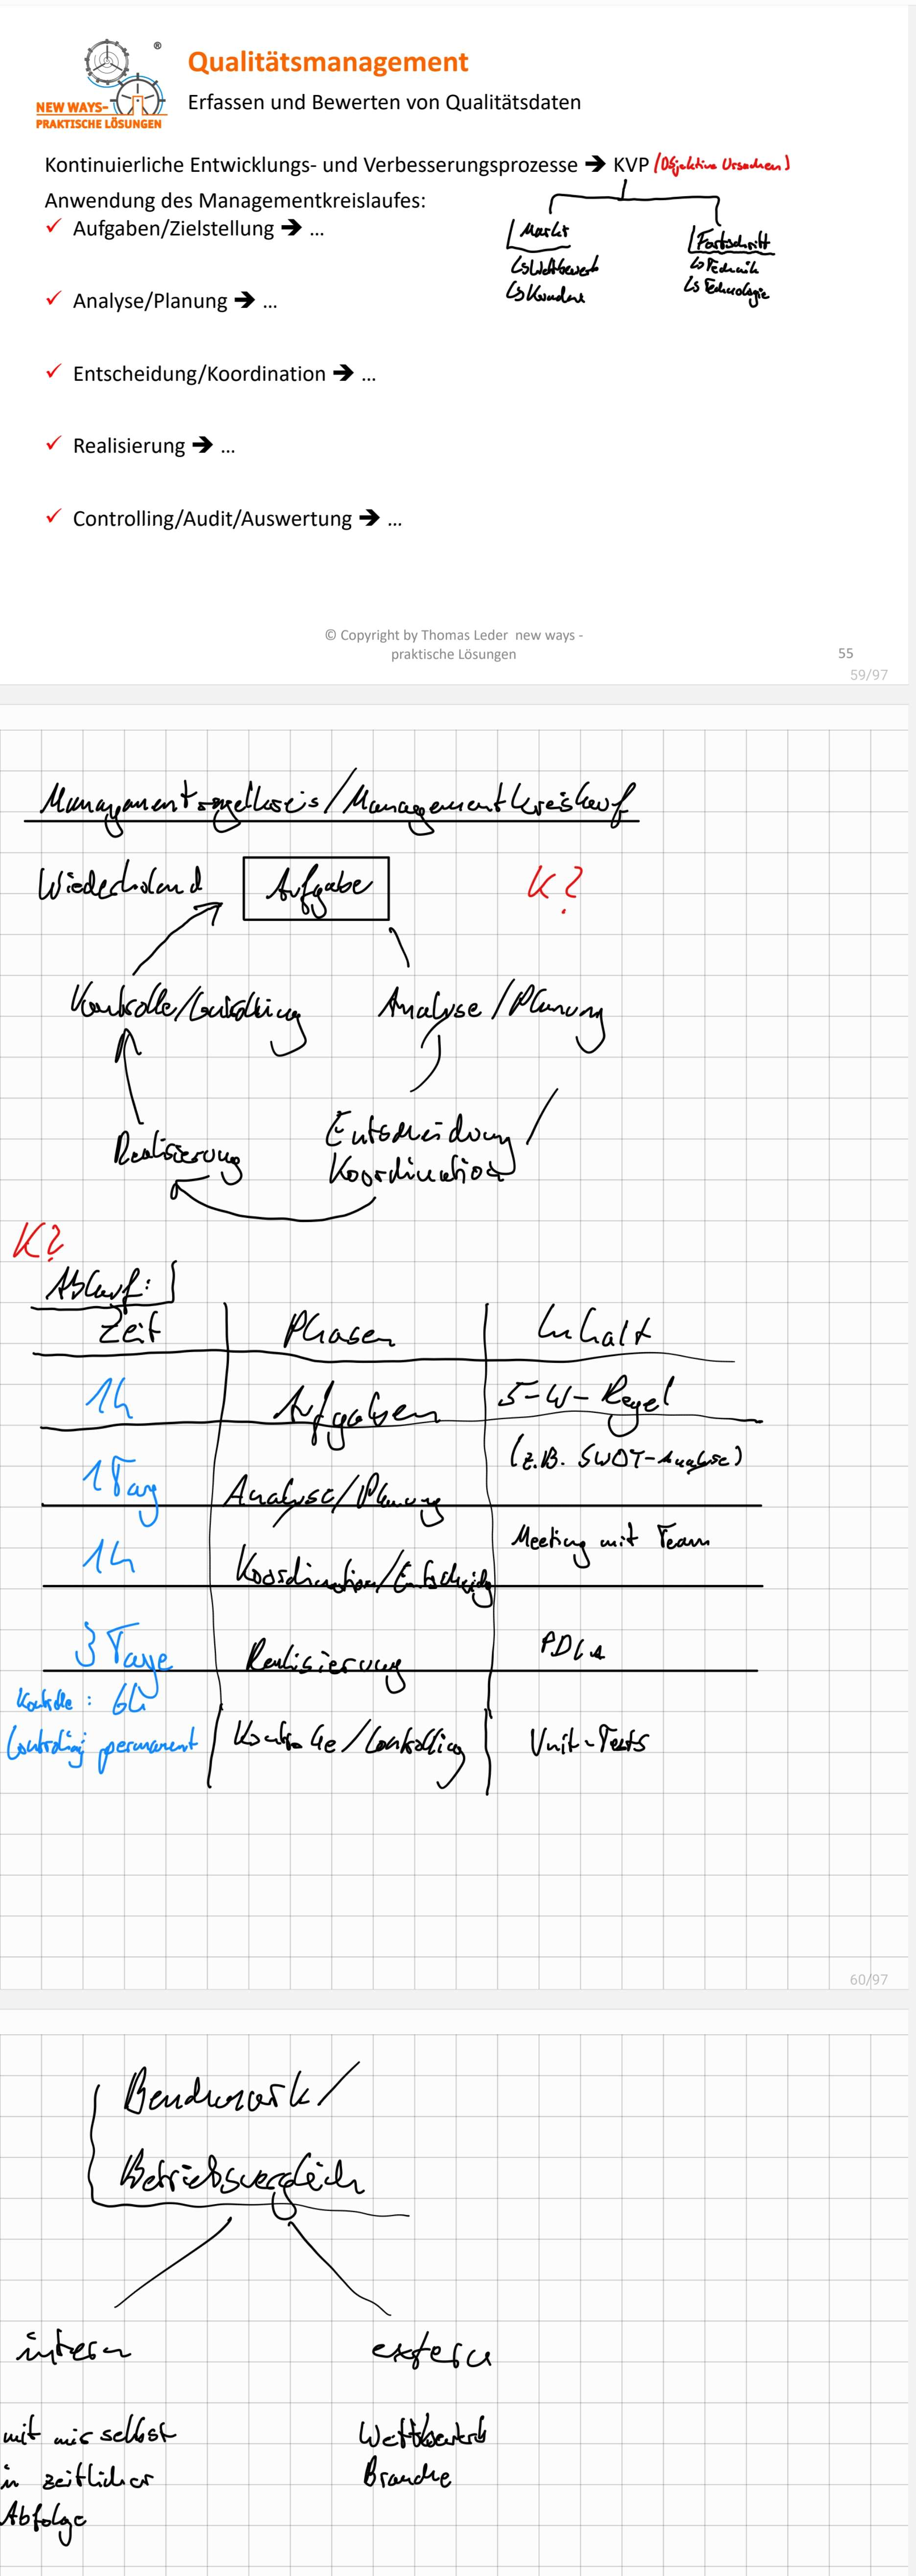 ®
NEW WAYS-
PRAKTISCHE LÖSUNGEN
Qualitätsmanagement
Erfassen und Bewerten von Qualitätsdaten
Kontinuierliche Entwicklungs- und Verbesserungsprozesse ➔ KVP (Objektive Ursachen)
Anwendung des Managementkreislaufes:
✓ Aufgaben/Zielstellung ➔ ...
Markt
↳ Wettbewerb
↳ Kunden
Fortschritt
↳ Technik
↳ Technologie
✓ Analyse/Planung ➔ ...
✓ Entscheidung/Koordination ➔ ...
✓ Realisierung ➔ ...
✓ Controlling/Audit/Auswertung ➔ ...
© Copyright by Thomas Leder new ways -
praktische Lösungen
55
59/97
Managementregelkreis/Managementkreislauf
Wiederholend
Aufgabe
K?
Kontrolle/Controlling
Analyse/Planung
Entscheidung/
Koordination
Realisierung
K?
Ablauf:
Zeit Phasen Inhalt
1h Aufgaben 5-W-Regel
1 Tag Analyse/Planung (z.B. SWOT-Analyse)
1h Koordination/Entscheidg Meeting mit Team
3 Tage Realisierung PDCA
Kontrolle: 6h
Controlling permanent Kontrolle/Controlling Unit-Tests
60/97
Benchmark/
Betriebsvergleich
intern
extern
mit mir selbst
in zeitlicher
Abfolge
Wettbewerb
Branche